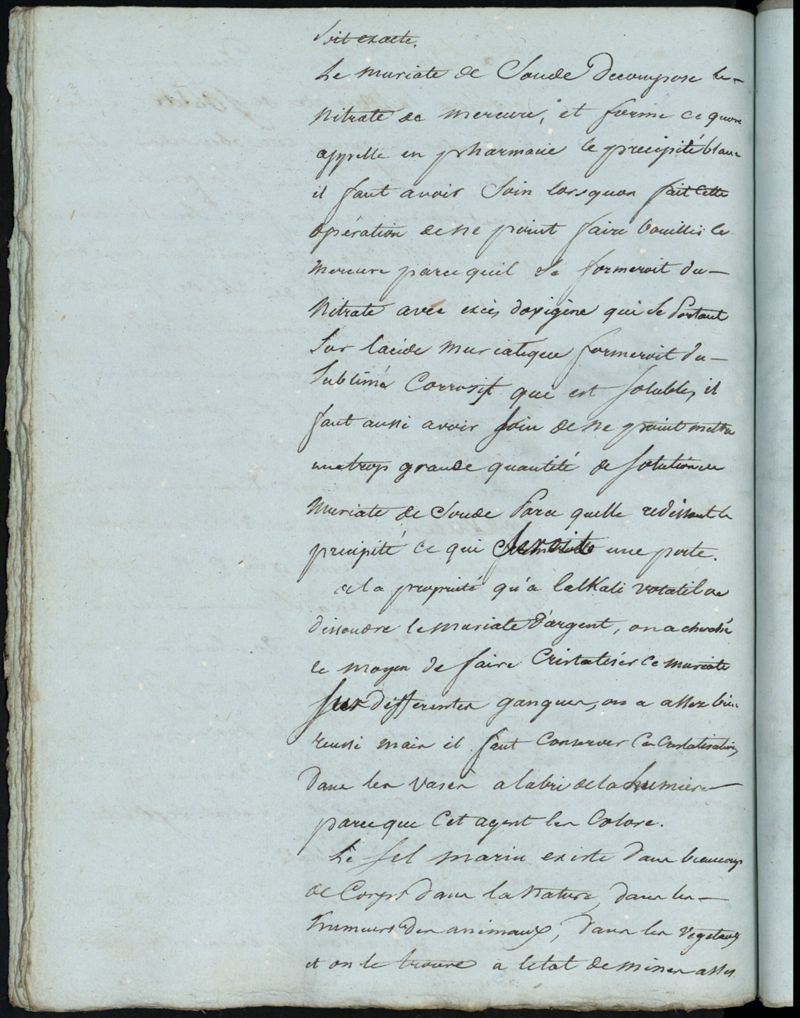 soit exacte.
Le muriate de Soude Decompose le
Nitrate de mercure, et forme ce quon
appelle en pharmacie le precipité blanc
il faut avoir Soin lorsquon fait Cette
opération de ne point faire bouillir le
Mercure parcequil se formeroit du
Nitrate avec excès doxigène qui se Portant
Sur lacide Muriatique formeroit du
Sublimé Corrosif qui est soluble, il
faut aussi avoir soin de ne point mettre
une trop grande quantité de solution de
Muriate de Soude Parce quelle redissout le
précipité ce qui seroit une perte.
a la propriété qu'a lalkali volatil de
dissoudre le Muriate D'argent, on a cherché
le moyen de faire Cristaliser Ce muriate
sur differentes gangues, on a assez bien
reussi mais il faut Conserver Ces Cristalisations
Dans les vases a labri de la lumiere
parceque Cet agent les Colore.
Le sel marin existe dans beaucoup
de Corps dans la Nature, dans les
humeurs des animaux, dans les vegetaux
et on le trouve a letat de mines assez